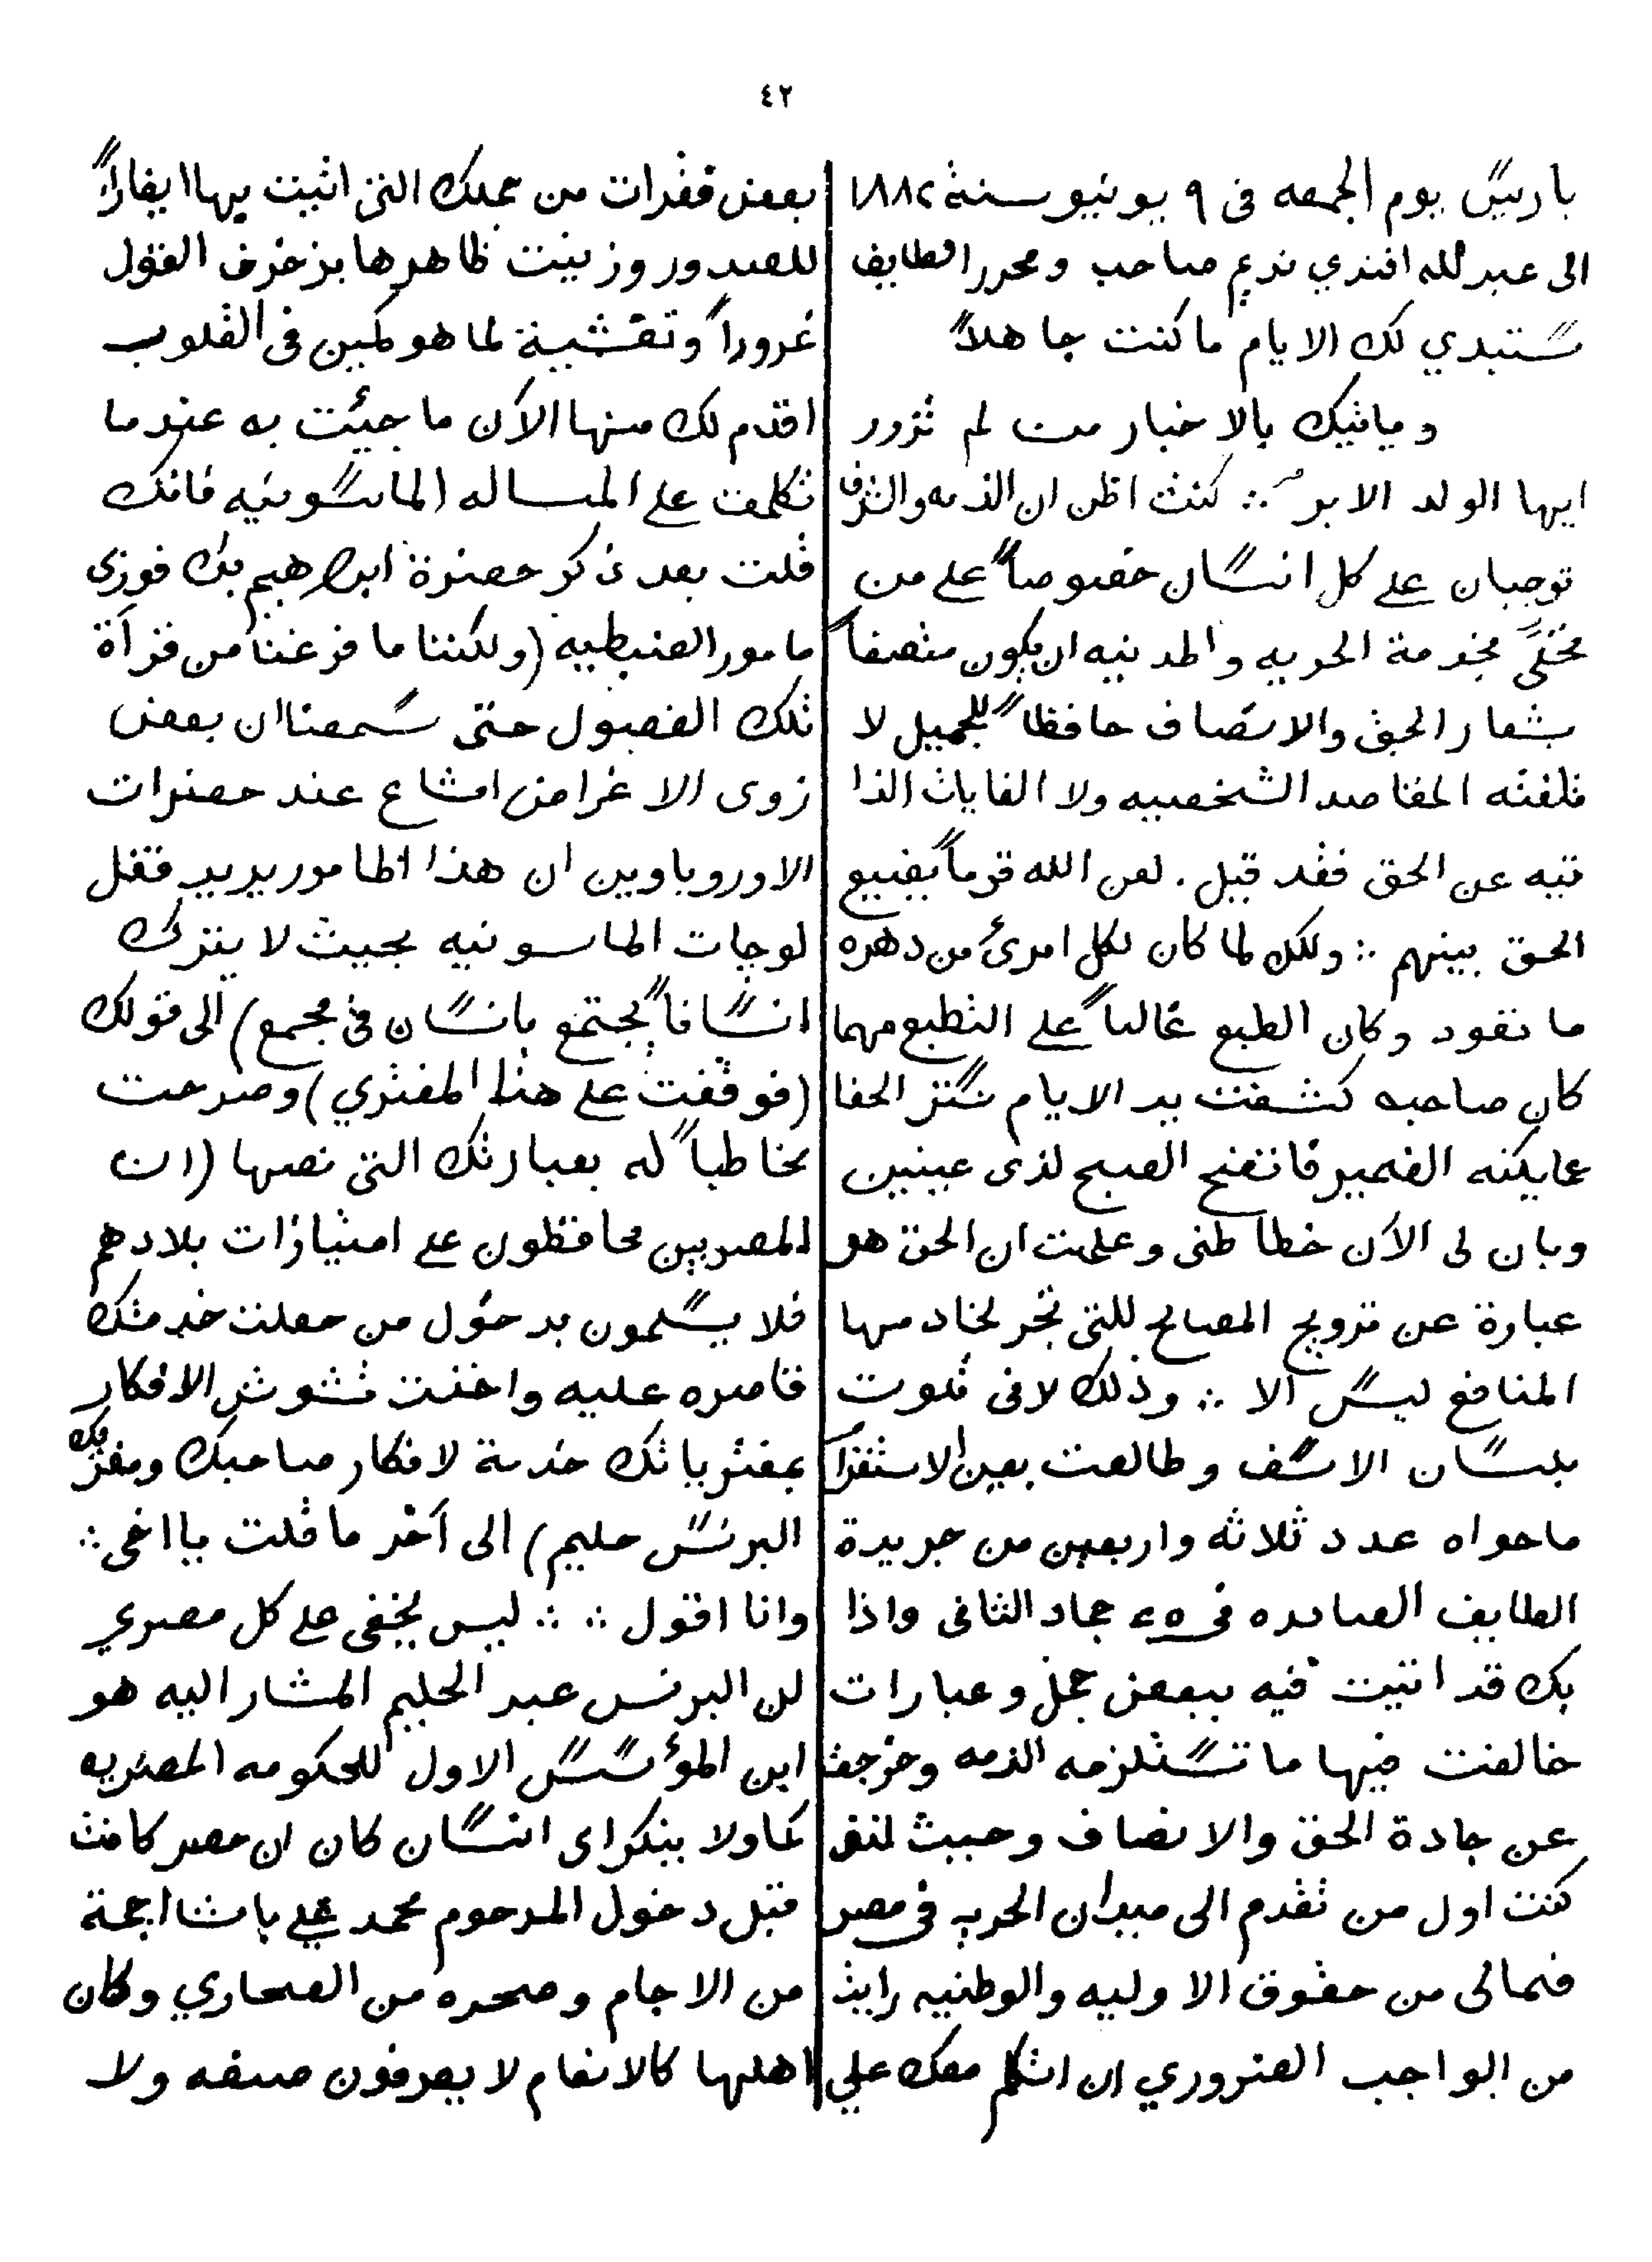 ٤٢
باريس يوم الجمعه فى ٩ يونيو سنة ١٨٨٢
الى عبد لله افندي نديم صاحب ومحرر الطايف
ستبدي لك الايام ما كنت جاهلاً
وياتيك بالاخبار من لم تزود
ايها الولد الابر ∴ كنت اظن ان الذمه والشرف
توجبان على كل انسان خصوصاً على من
تحلى بخدمة الحريه والمدنيه ان يكون متصفاً
بشعار الحق والانصاف حافظاً للجميل لا
تلفته المقاصد الشخصيه ولا الغايات الذا
تيه عن الحق فقد قيل . لعن الله قوماً يضيع
الحق بينهم ∴ ولكن لما كان لكل امرئ من دهره
ما تعود وكان الطبع غالباً على التطبع مهما
كان صاحبه كشفت يد الايام ستر الخفا
عما يكنه الضمير فاتضح الصبح لذى عينين
وبان لى الآن خطا ظنى وعلمت ان الحق هو
عبارة عن ترويج المصالح للتى تجر لخادمها
المنافع ليس الا ∴ وذلك لانى تلوت
بلسان الاسف وطالعت بعين الاستقرا
ما حواه عدد ثلاثه واربعين من جريدة
الطايف الصادره فى ٢٥ جماد الثانى واذا
بك قد اتيت فيه ببعض جمل وعبارات
خالفت فيها ما تستلزمه الذمه وخرجت
عن جادة الحق والانصاف وحيث لنفى
كنت اول من تقدم الى ميدان الحريه فى مصر
فمالى من حقوق الاوليه والوطنيه رايت
من الواجب الضروري ان اتكلم معك علي
بعض فقرات من جملك التى اثبت بها ايغاراً
للصدور وزينت ظاهرها بزخرف القول
غروراً وتغشية لما هو كمين فى القلوب
اقدم لك منها الآن ما جيئت به عندما
تكلمت على المساله الماسونيه فانك
قلت بعد ذكر حضرة ابراهيم بك فوزى
مامور الضبطيه (ولكننا ما فرغنا من قرآة
تلك الفصول حتى سمعنا ان بعض
زوى الاغراض اشاع عند حضرات
الاوروباوين ان هذا المامور يريد قفل
لوجات الماسونيه بحيث لا يترك
انساناً يجتمع بانسان فى مجمع) الى قولك
(فوقفت على هذا المفتري) وصرحت
مخاطباً له بعبارتك التى نصها (ان
المصريين محافظون على امتيازات بلادهم
فلا يسلمون بدخول من جعلت خدمتك
قاصره عليه واخذت تشوش الافكار
بمفترياتك خدمة لافكار صاحبك ومغرك
البرنس حليم) الى آخر ما قلت يا اخى ∴
وانا اقول ∴ ∴ ليس يخفى على كل مصري
لن البرنس عبد الحليم المشار اليه هو
ابن المؤسس الاول للحكومه المصريه
كما ولا ينكر اى انسان كان ان مصر كانت
قبل دخول المرحوم محمد علي باشا اجمة
من الاجام وصحره من الصحاري وكان
اهلها كالانعام لا يعرفون صنعه ولا